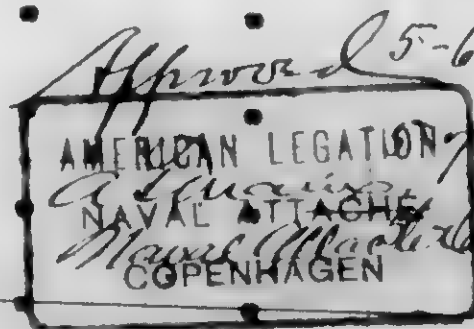 Approved 5-6
AMERICAN LEGATION
NAVAL ATTACHE
Naval Attaché
COPENHAGEN